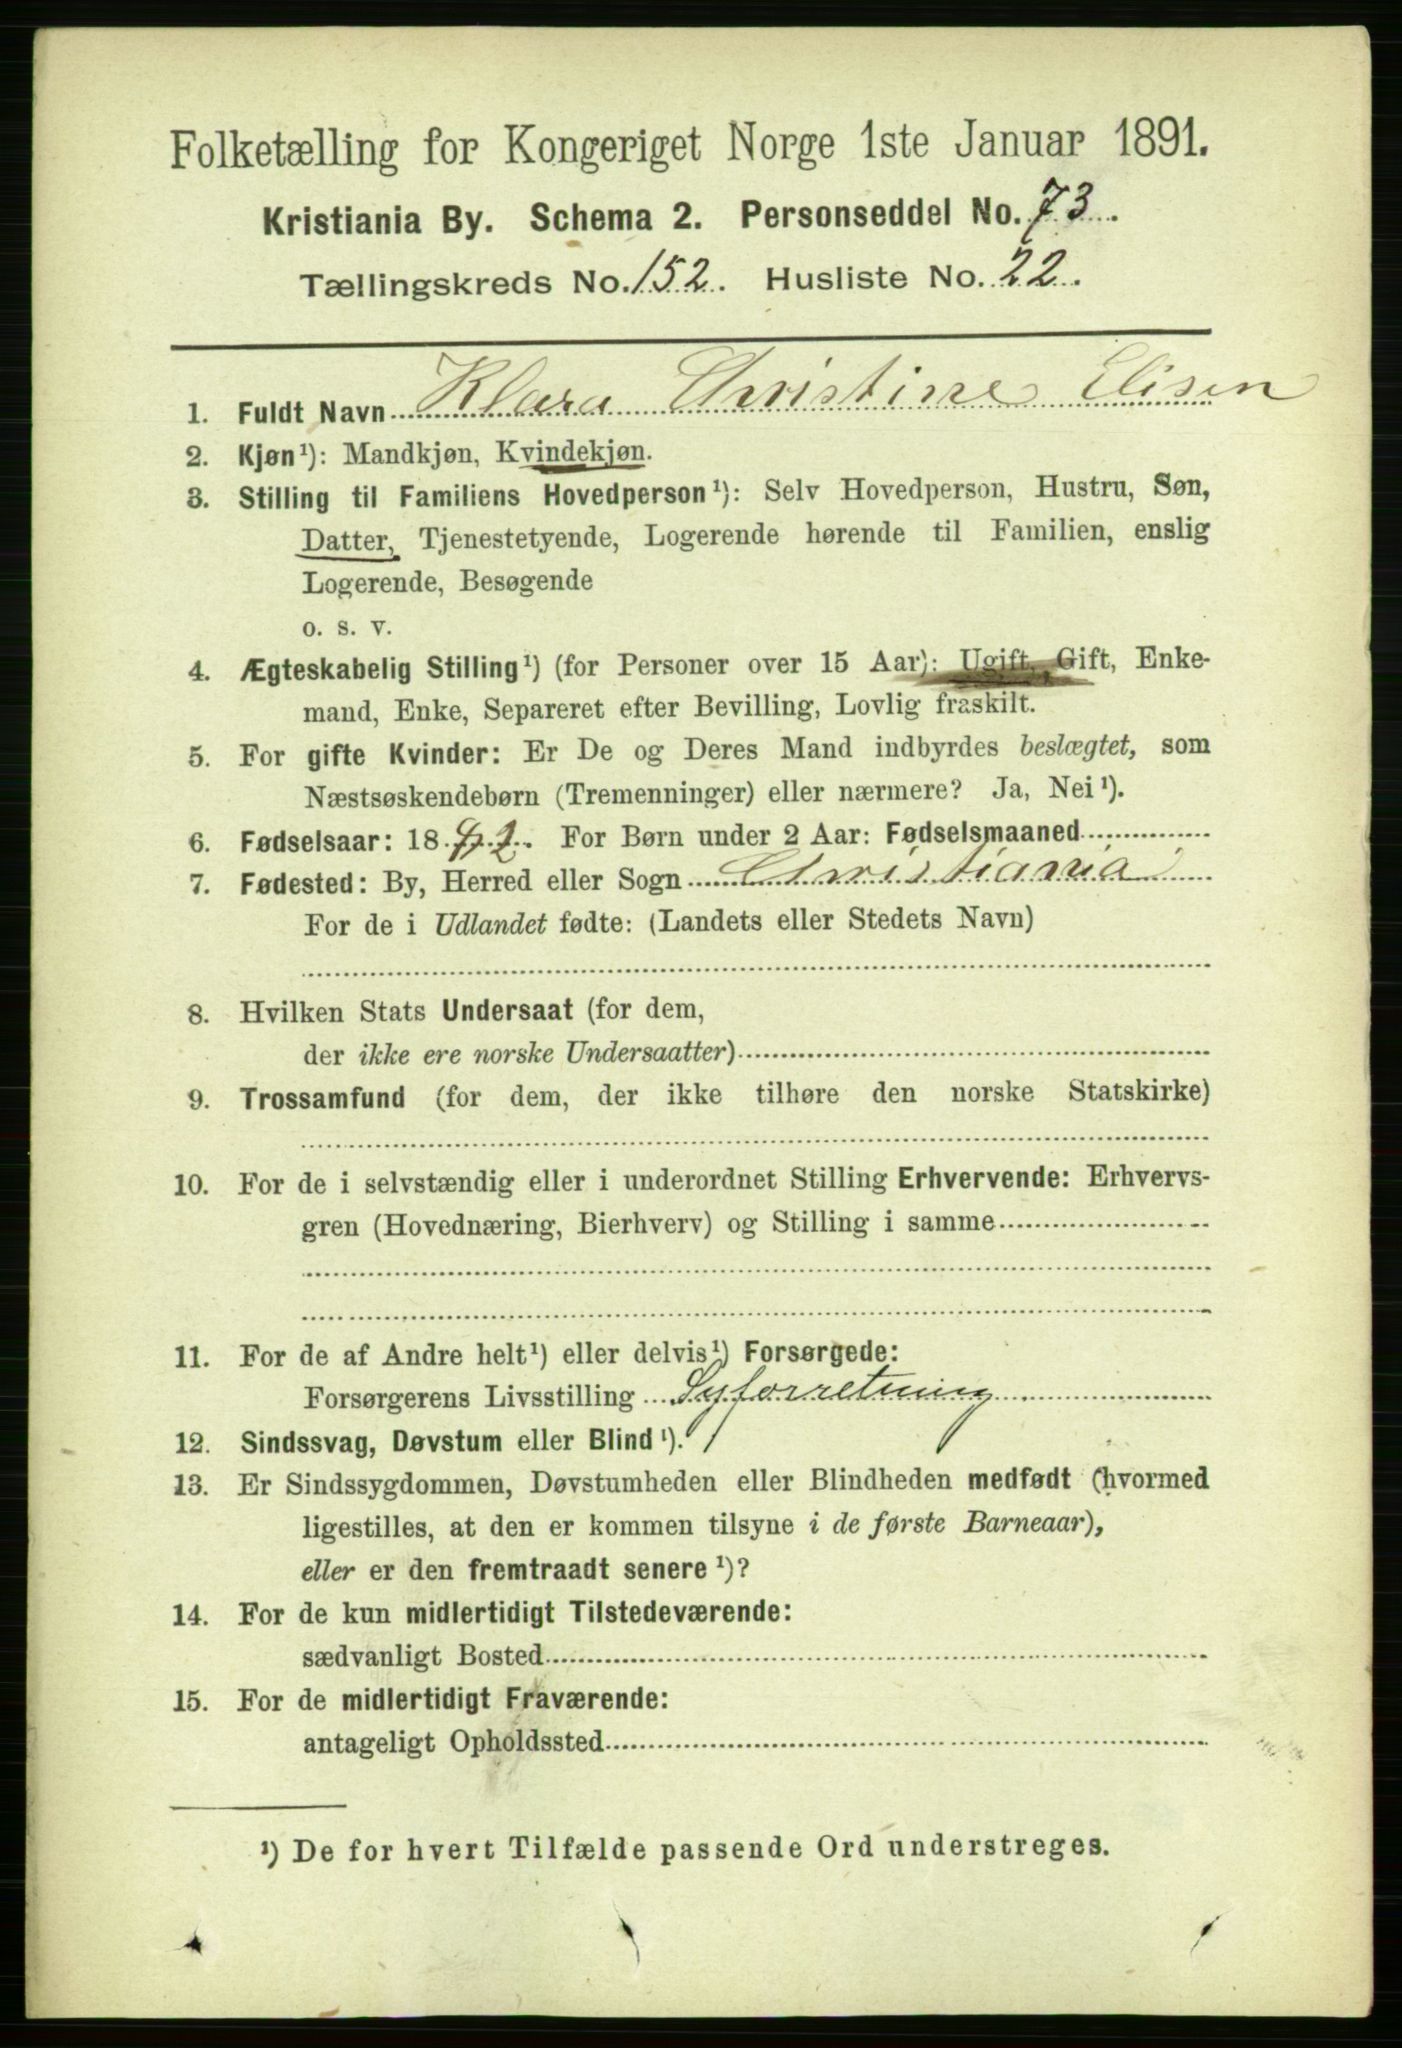 Folketælling for Kongeriget Norge 1ste Januar 1891.
Kristiania By. Schema 2. Personseddel No. 73.
Tællingskreds No. 152. Husliste No. 22.
1. Fuldt Navn Klara Christine Elisen
2. Kjøn¹): Mandkjøn, Kvindekjøn.
3. Stilling til Familiens Hovedperson¹): Selv Hovedperson, Hustru, Søn,
Datter, Tjenestetyende, Logerende hørende til Familien, enslig
Logerende, Besøgende
o. s. v.
4. Ægteskabelig Stilling¹) (for Personer over 15 Aar): Ugift, Gift, Enke-
mand, Enke, Separeret efter Bevilling, Lovlig fraskilt.
5. For gifte Kvinder: Er De og Deres Mand indbyrdes beslægtet, som
Næstsøskendebørn (Tremenninger) eller nærmere? Ja, Nei¹).
6. Fødselsaar: 18 For Børn under 2 Aar: Fødselsmaaned
7. Fødested: By, Herred eller Sogn Christiania
For de i Udlandet fødte: (Landets eller Stedets Navn)
8. Hvilken Stats Undersaat (for dem,
der ikke ere norske Undersaatter)
9. Trossamfund (for dem, der ikke tilhøre den norske Statskirke)
10. For de i selvstændig eller i underordnet Stilling Erhvervende: Erhvervs-
gren (Hovednæring, Bierhverv) og Stilling i samme
11. For de af Andre helt¹) eller delvis¹) Forsørgede:
Forsørgerens Livsstilling Syforretning
12. Sindssvag, Døvstum eller Blind¹).
13. Er Sindssygdommen, Døvstumheden eller Blindheden medfødt (hvormed
ligestilles, at den er kommen tilsyne i de første Barneaar),
eller er den fremtraadt senere¹)?
14. For de kun midlertidigt Tilstedeværende:
sædvanligt Bosted
15. For de midlertidigt Fraværende:
antageligt Opholdssted
¹) De for hvert Tilfælde passende Ord understreges.